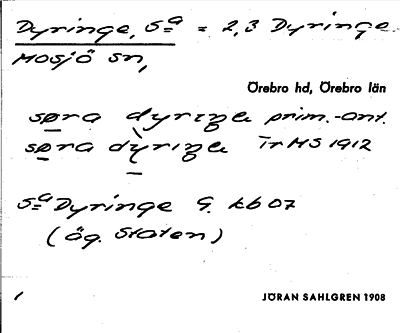 Dyringe, Sᵃ = 2, 3 Dyringe
Mosjö sn,
Örebro hd, Örebro län
søra dyriŋe prim.-ant.
søra dỳriŋe IrMS 1912
Sᵃ Dyringe G. kb 07
(äg. Staten)
JÖRAN SAHLGREN 1908